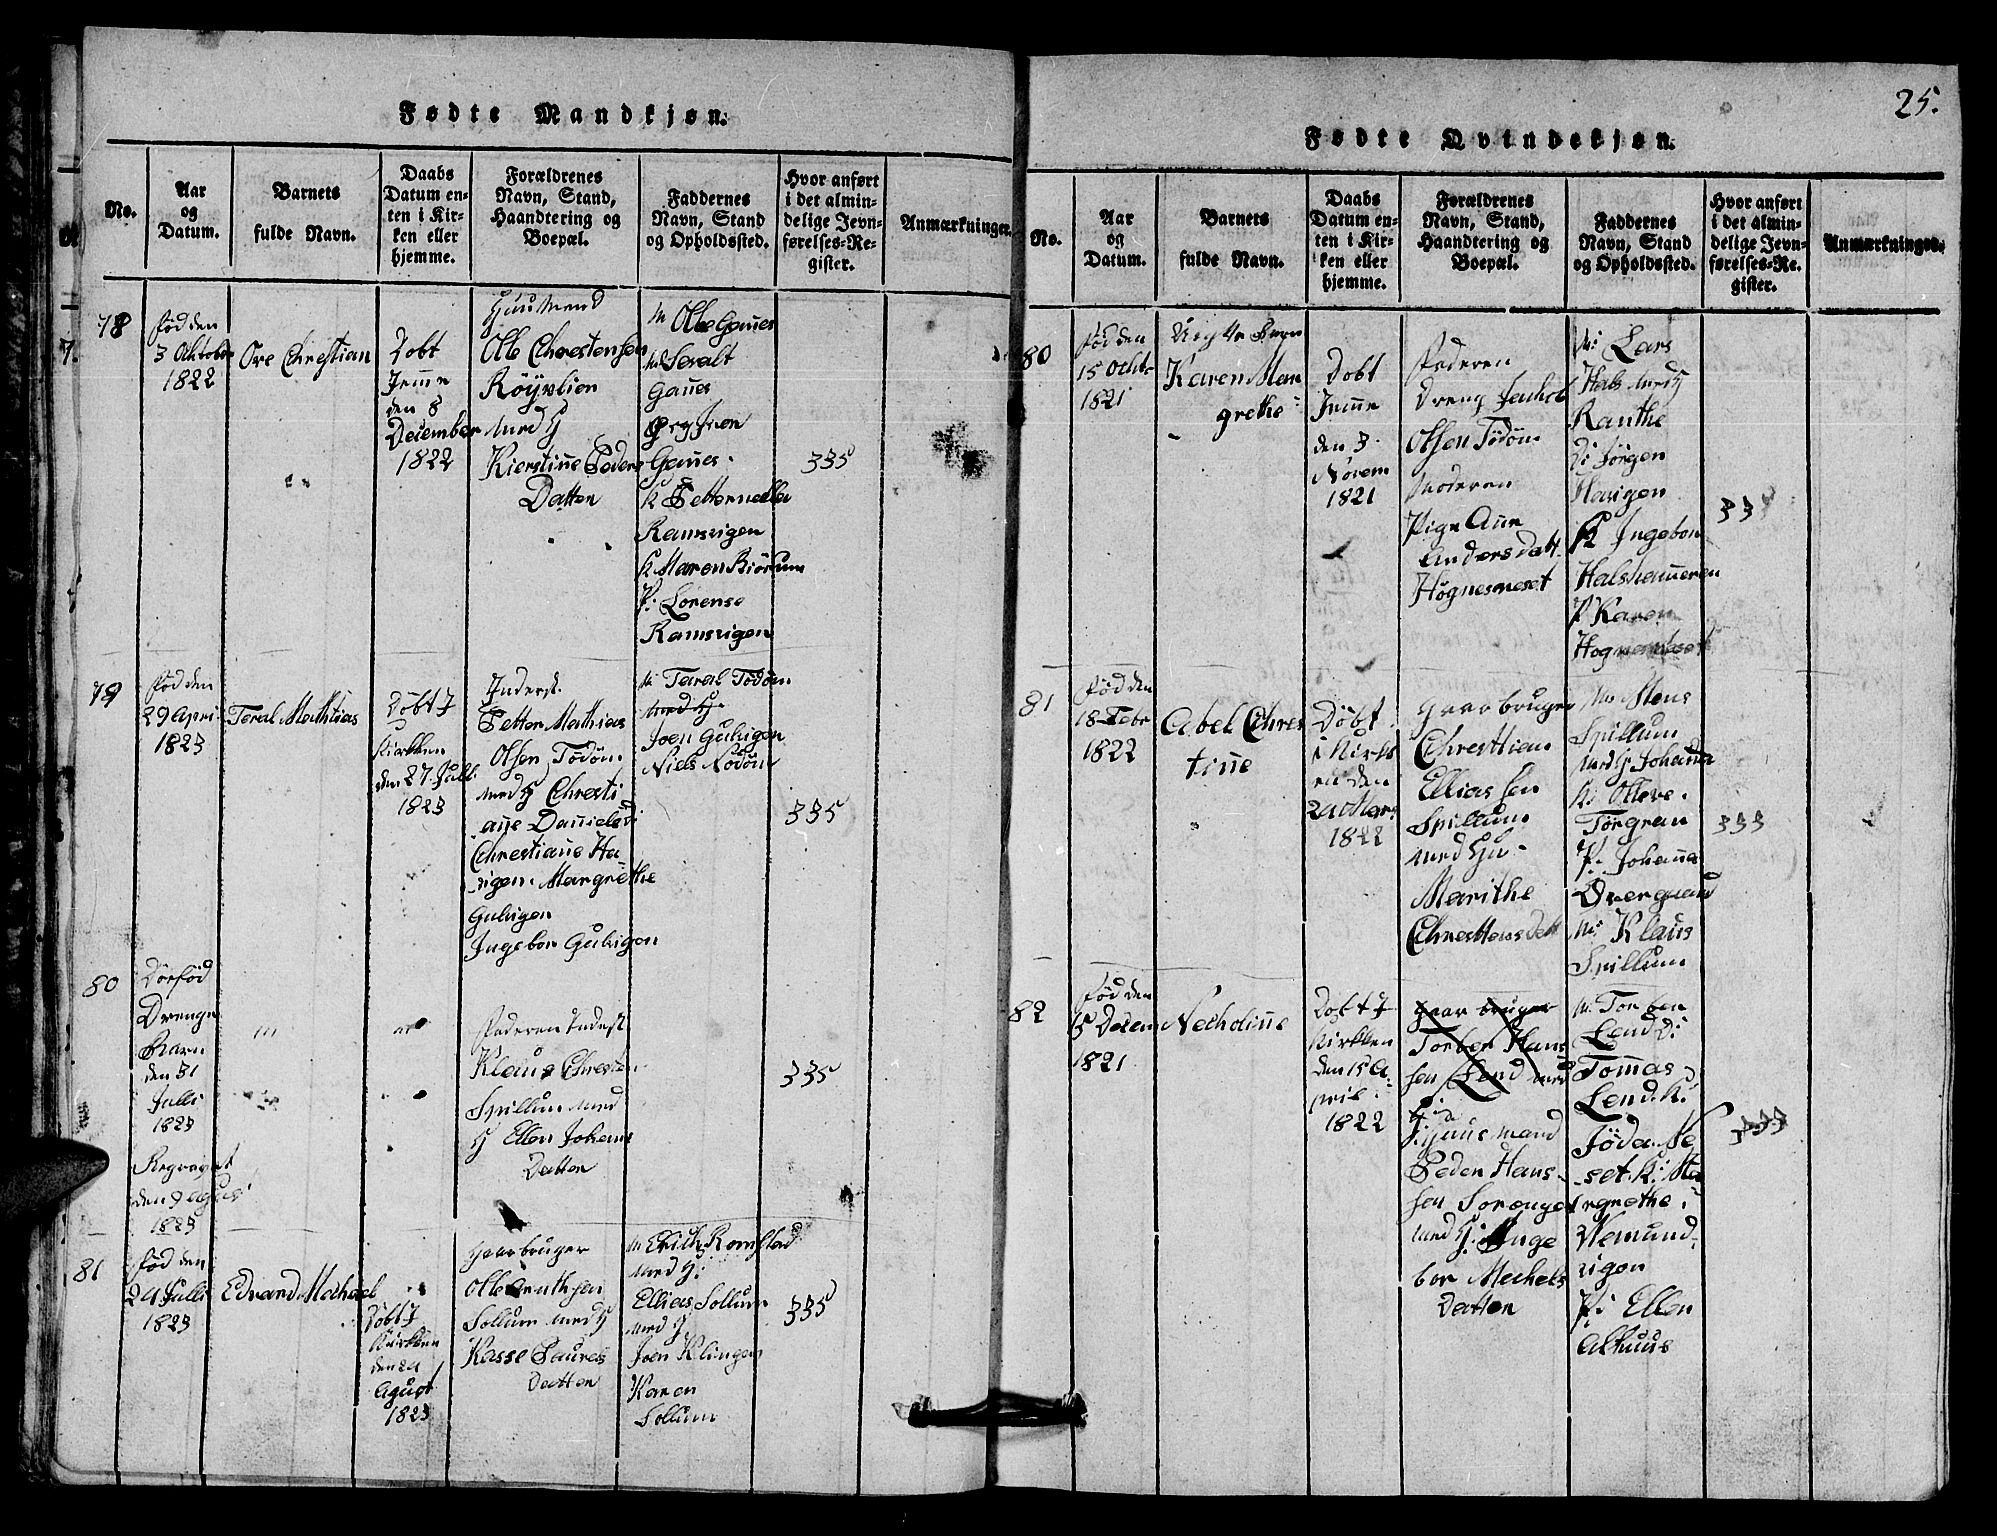 Fødte Mandkjøn.
No.
Aar
og
Datum.
Barnets
fulde Navn.
Daabs
Datum en-
ten i Kir-
ken eller
hjemme.
Forældrenes
Navn, Stand,
Haandtering og
Boepæl.
Faddernes
Navn, Stand
og Opholdssted.
Hvor anført
i det almin-
delige Jevn-
førelses-Re-
gister.
Anmærkninger.
78
fød den
3 Oktober
1822
Ore Chrestian
Dobt
den 8
December
1822
Huusmand
Olle Chrestensen
Röÿvlien
med H
Kierstine Peders
Datter
M Olle Gaues
Gaues
Gaues
K Petternella
Ramsvigen
K Maren Biörum
P: Lorense
Ramsvigen
335
79
fød den
29 Apri
1823
Taral Mathias
Døbt J
Kirkken
den 27 Juli
1823
Inderst.
Petter Mathias
Olsen Tödöm
med H Chresti
ane Daniels D:
Chrestiane Ha
vigen. Margrethe
Gulvigen
Ingebor Gulvigen
M: Taral Tödöm
med H.
Joen Gulvigen
Niels Nödöm
335
80
Dørfød
Drenge
Barn
den 31
Julli
1823
Begravet
den 9 agus
1823
Faderen Inderst.
Klaus Chresten
Spillum med
H Ellen Johans
Datter
335
81
fød den
24 Julli
1823
Edvard Mechael
Døbt J
Kirkken
den 24
Agust
1823
Gaarbruger
Olle Knuthsen
Sollum med H
Kasse Paurels
Datter
M Erich Romstad
med H:
Ellias Sollum
med H
Joen Klingen
Karen
Sollum
335
25.
Fødte Qvindekjøn.
No.
Aar
og
Datum.
Barnets
fulde Navn.
Daabs
Datum en-
ten i Kir-
ken eller
hjemme.
Forældrenes
Navn, Stand,
Haandtering og
Boepæl.
Faddernes
Navn, Stand
og Opholdssted.
Hvor anført
i det almin-
delige Jevn-
førelses-Re-
gister.
Anmærkninger.
80
fød den
15 Ockto
1821
Uegte Barn
Karen Mar
grethe
Dobt
den 3
Novem
1821
Faderen
Dreng Jachob
Olsen Tödöm
Moderen
Pige Ane
Anders datt.
Hognesneset
M: Lars
Hals med H
Ranthe
D: Jörgen
Havigen
K Ingebor
Halshaueren
P Karen
333
81
fød den
18 Febr
1822
Abel Chres
tine
Döbt
i Kirk
en den
1822
Gaarbruger
Chresttian
Ellias sen
Spillum
med Hu
Marithe
Chresttensdatt
M: Mons
Spillum
med H Johanna
K: Olleve
Törgran
P. Johana
Dvergsand
M: Klaus
Spillum
333
82
fød den
15 Desem
1821
Necholine
Dobt J
Kirkken
den 15 A
pril
1822
Gaar bruger
Torber Hans
sen Lend med
H:
Huusmand
Peder Hans
sen Sorönger
med H: Inge
bor Mechels
Datter
M: Torber
Lend D:
Tomas
Lend. K:
Jöda. Ne
set. K: Ma
rgrethe
Nemund-
vigen
P: Ellen
Alhuus
333